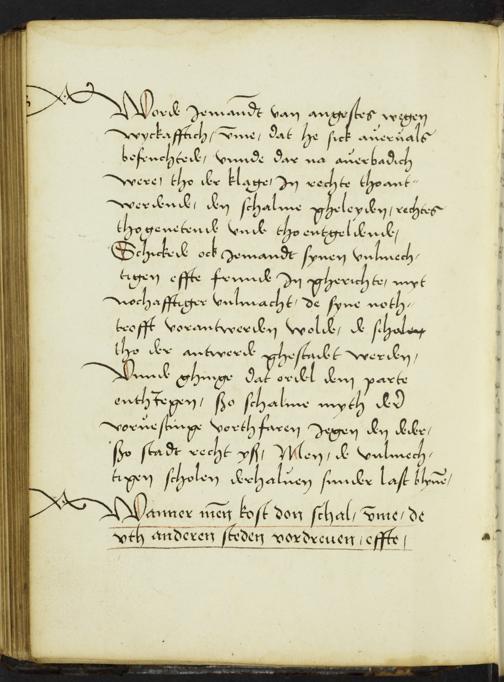 Worde Jemandt van angestes wegen
wyckafftich, vme, dat he sick aueruals
befruchtede, vnnde dar na auerbadich
were, tho der klage, In rechte thoant-
werdende, den schalme gheleyden, rechtes
thogenetende vnde thoentgeldende,
Schickede ock Jemandt synen vulmech-
tigen effte frunde In gherichte, myt
nochafftiger vulmacht, de syne noth-
trofft vorantwerden wolde, de scholen
tho der antwerde ghestadet werden,
Vnnde ghinge dat ordel dem parte
entheɡen, ßo schalme myth der
voruestinge vorthfaren Jegen den deder,
ßo stadt recht yß, Men, de vulmech-
tigen scholen derhaluen sunder last blyue,
Wanner men kost don schal, vme, de
vth anderen steden vordreuen, effte,